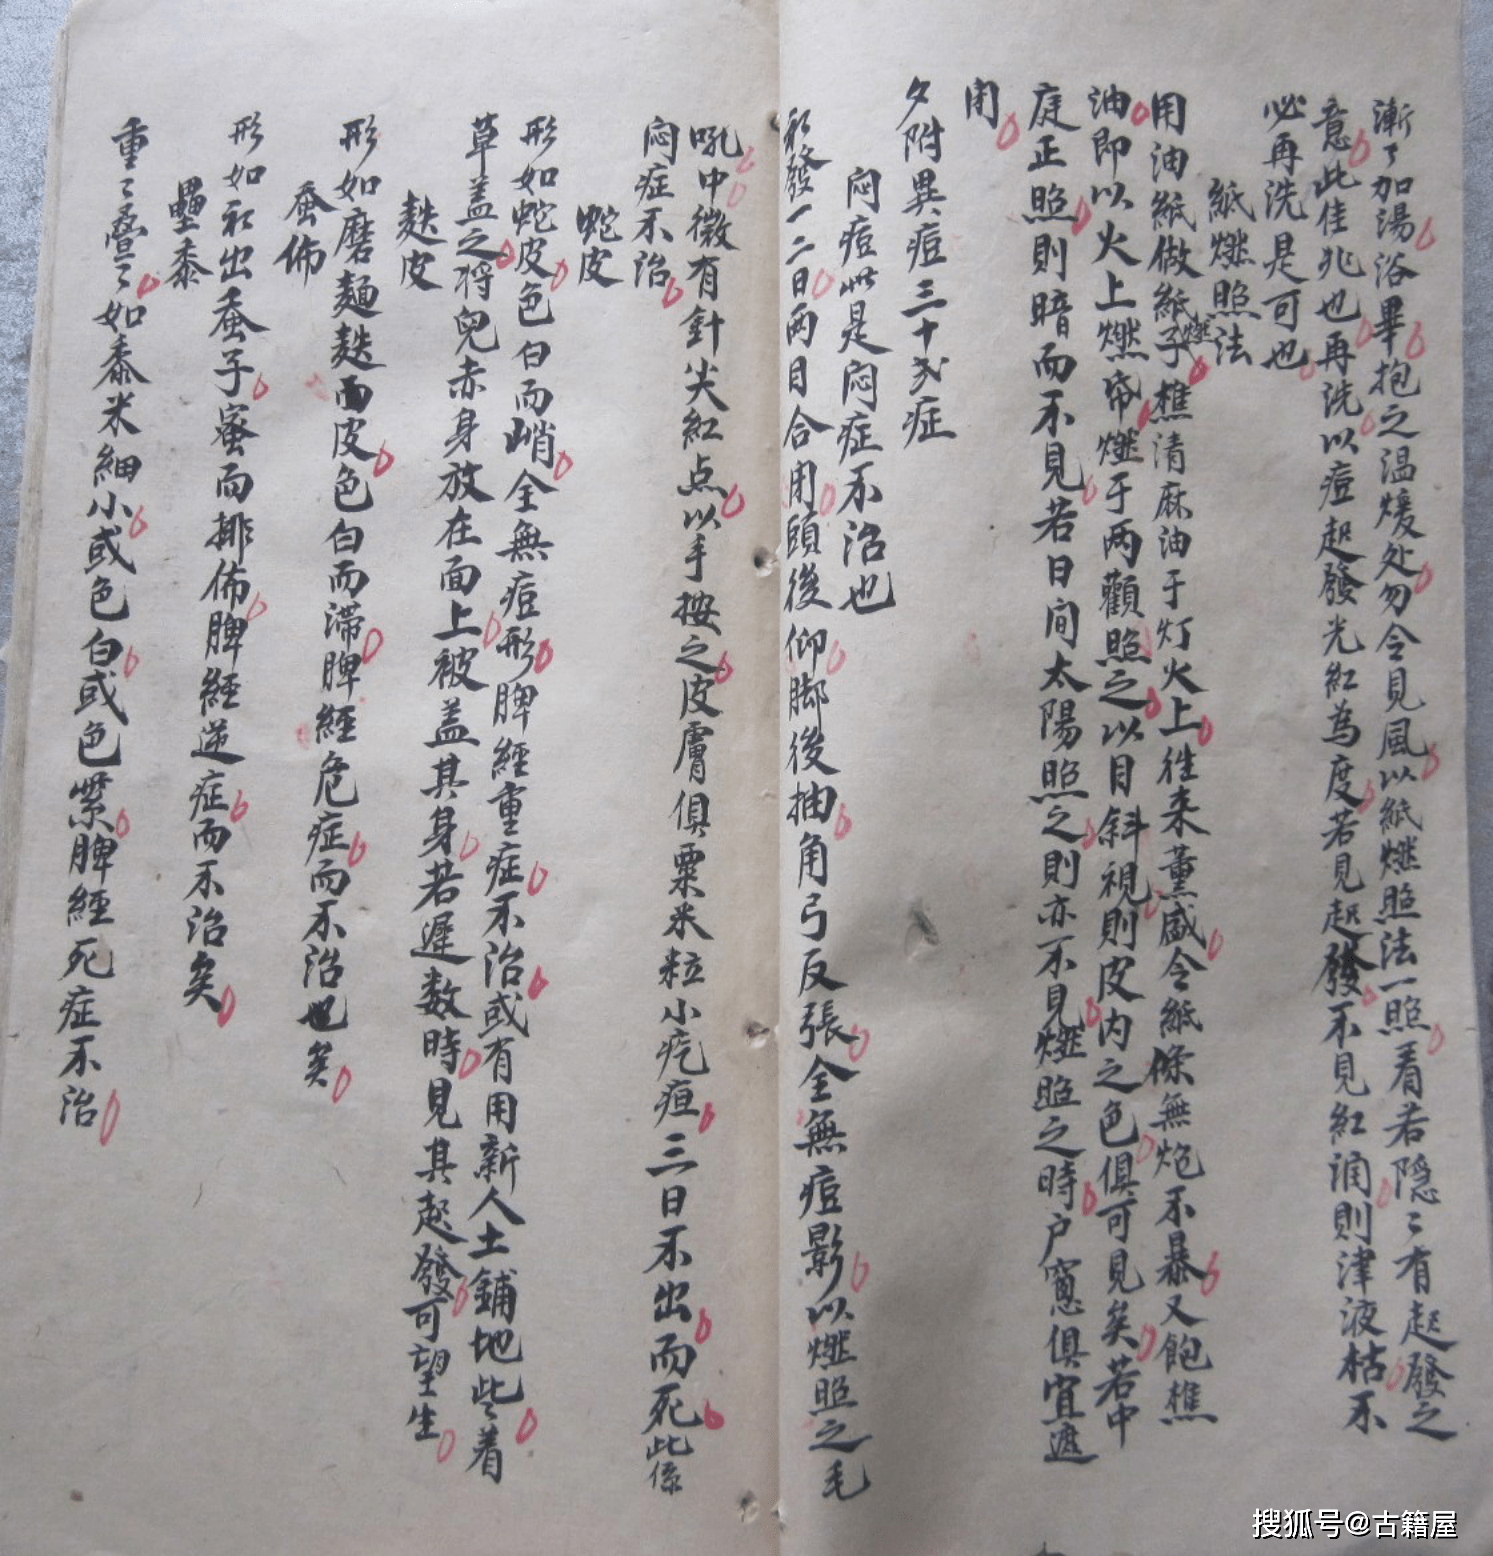 漸々加湯浴畢抱之温煖处勿令見風以紙燃照法一照看若隐々有起發之
意此佳兆也再洗以痘起發光紅為度若見起發不見紅润則津液枯不
必再洗是可也
紙燃照法
用油紙做紙子燃樵清麻油于灯火上徃来薰感令紙條無炮不暴又飽樵
油即以火上燃帋燃于两顴照之以目斜視則皮内之色俱可見矣若中
庭正照則暗而不見若日间太陽照之則亦不見燃照之時户窻俱宜遮
闭
夕附異痘三十弍症
闷痘此是闷症不治也
初發一二日两目合闭頭後仰脚後抽角弓反張全無痘影以燃照之毛
吼中微有針尖紅点以手按之皮膚俱粟米粒小疙疸三日不出而死此係
闷症不治
蛇皮
形如蛇皮色白而峭全無痘形脾經重症不治或有用新人土鋪地些着
草盖之将兒赤身放在面上被盖其身若遲数時見其起發可望生
麩皮
形如磨麵麩面皮色白而滞脾經危症而不治也矣
蚕佈
形如初出蚕子蜜而排佈脾經逆症而不治矣
壘黍
重々叠々如黍米細小或色白或色紫脾經死症不治
搜狐号@古籍屋